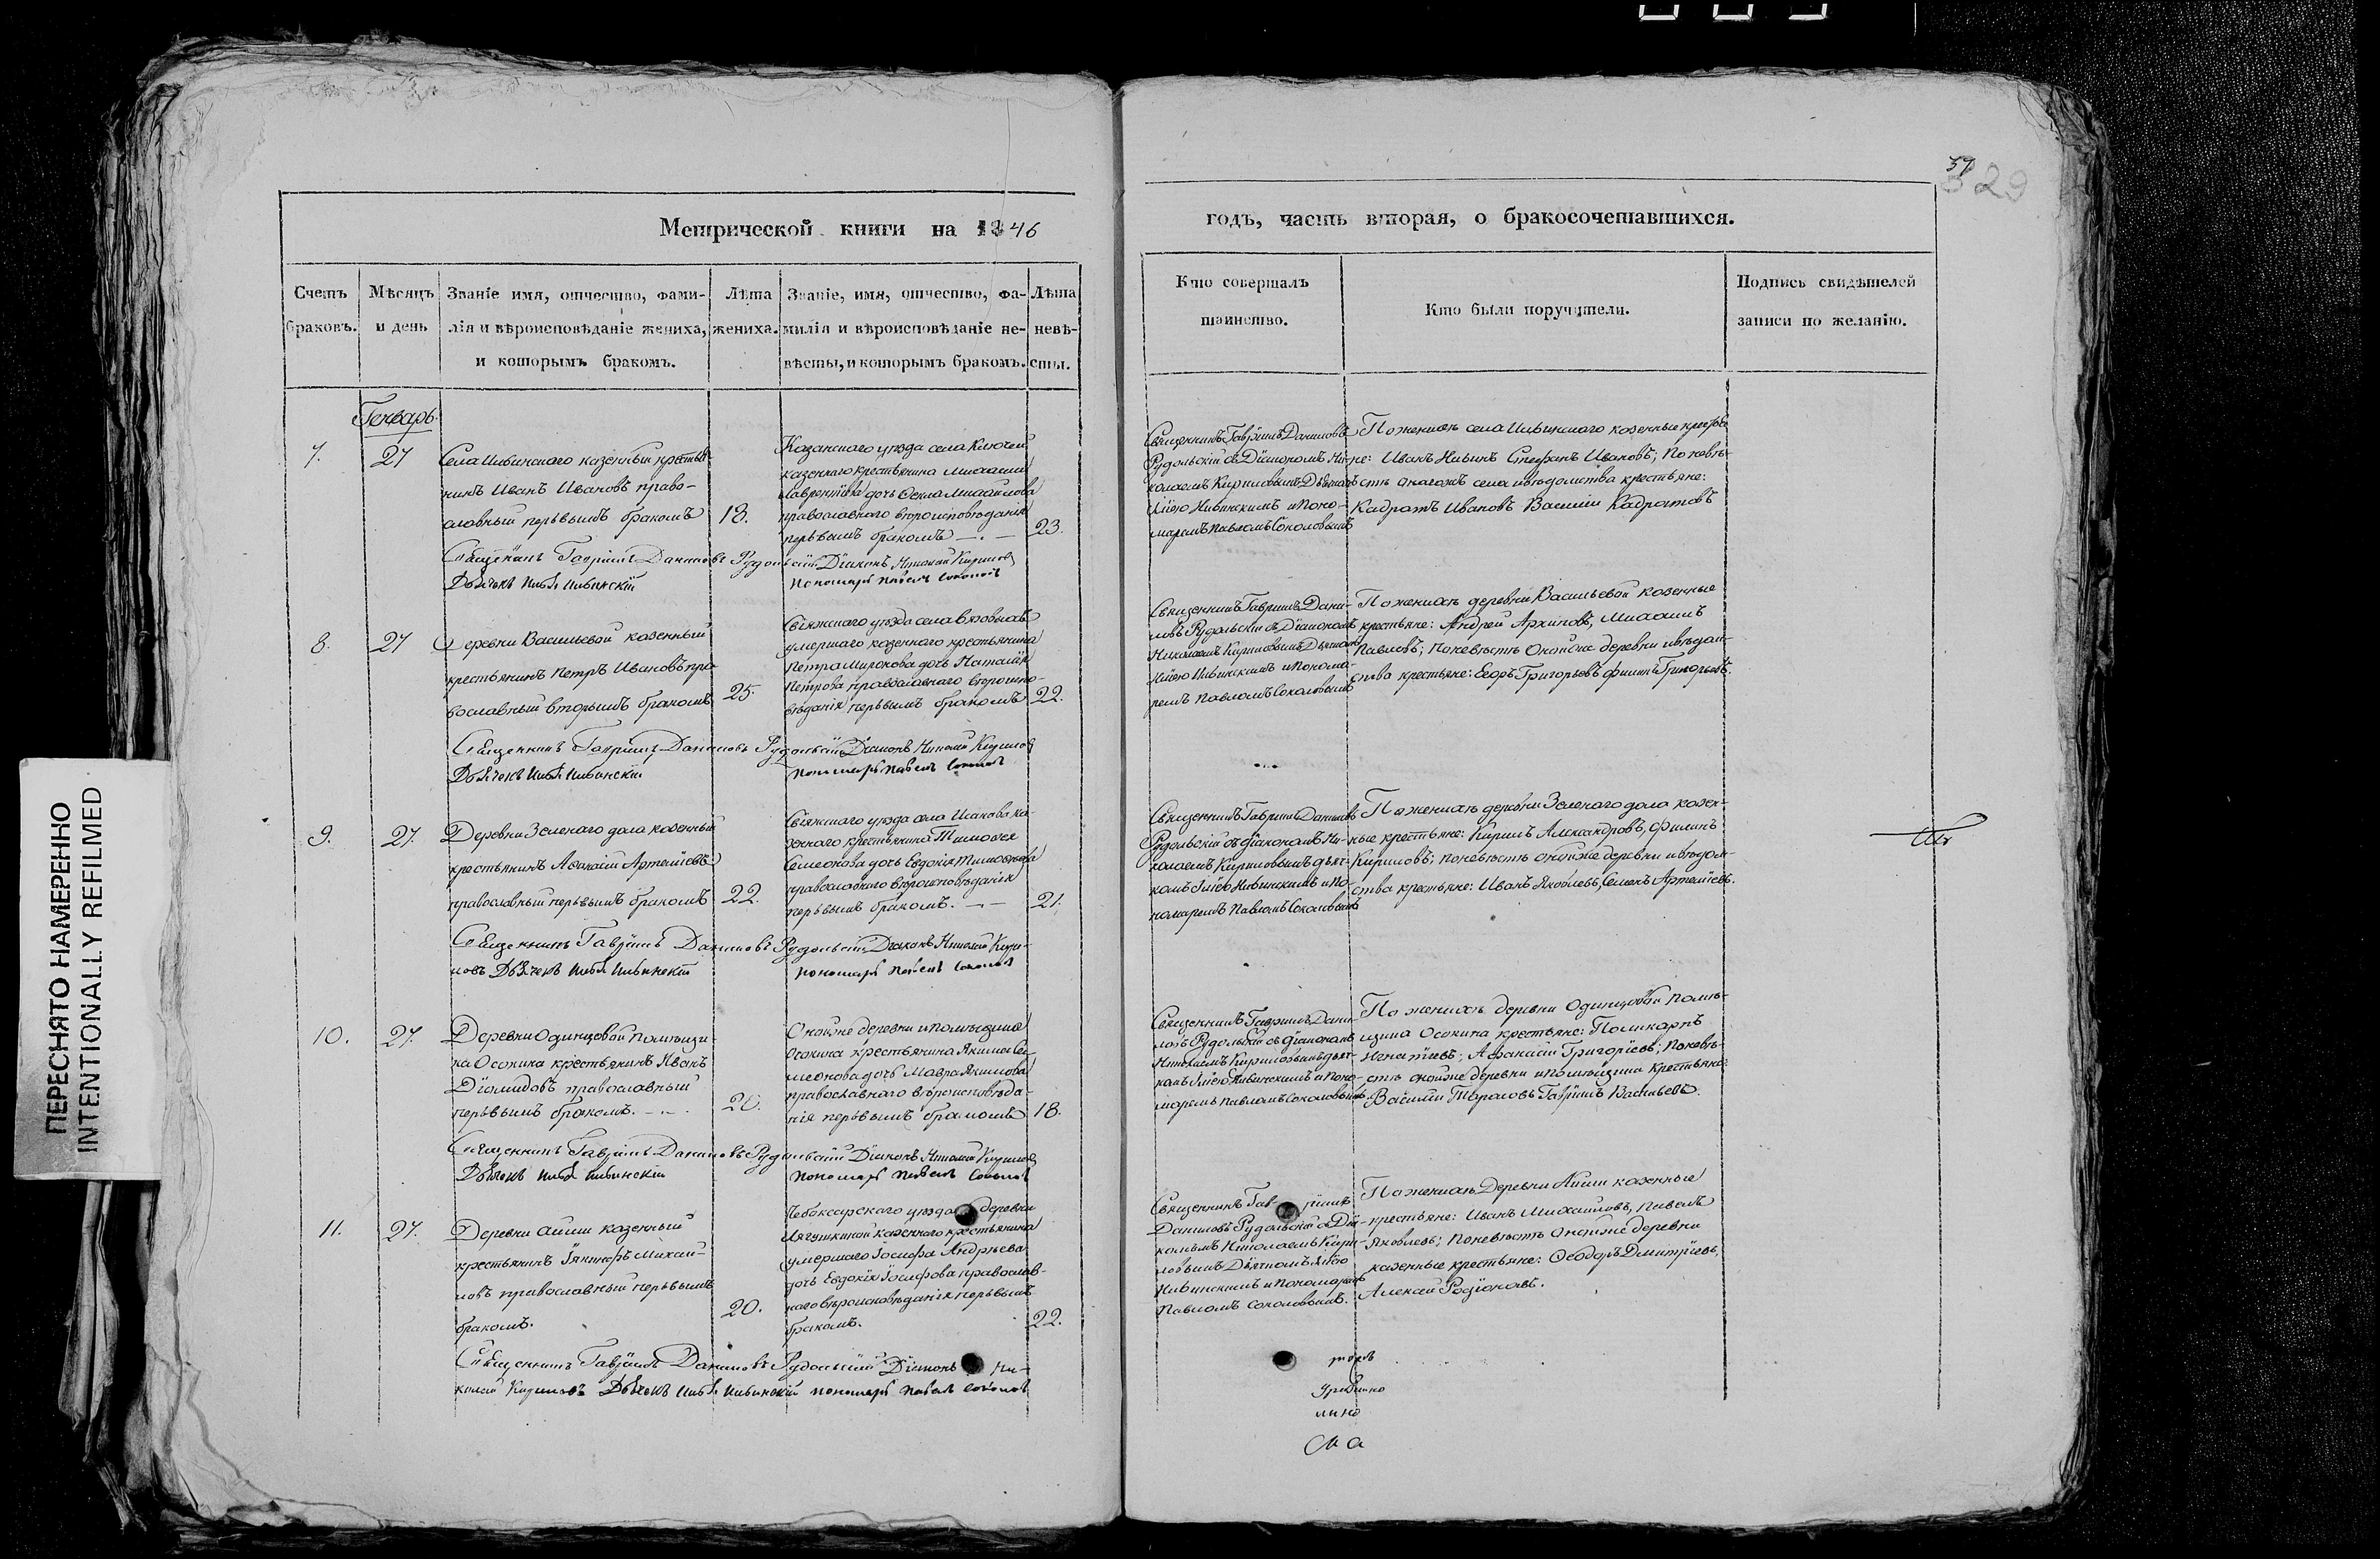 57
329
Метрической книги на 1846
годъ, часть вторая, о бракосочетавшихся.
Счетъ браковъ.
Мѣсяцъ и день
Званіе имя, отчество, фами-
лія и вѣроисповѣданіе жениха,
и которымъ бракомъ.
Лѣта
жениха.
Званіе, имя, отчество, фа-
милія и вѣроисповѣданіе не-
вѣсты, и которымъ бракомъ.
Лѣта
невѣ-
сты.
Кто совершалъ
таинство.
Кто были поручители.
Подпись свидѣтелей
записи по желанію.
Генварь.
7.
27
Села Ивинскаго казенный крестья-
нинъ Иванъ Ивановъ право-
славный первымъ бракомъ
18.
Казанскаго уѣзда села Ключей
казеннаго крестьянина
дочь Фекла Михайлова
православнаго вѣроисповѣданія
первымъ бракомъ
23.
Священникъ Гавріилъ Даниловъ
Рудольскій съ Діакономъ Ни-
колаемъ Кириловымъ Дьячкомъ
Ивинскимъ и Поно-
маремъ Павломъ Соколовымъ
По женихѣ села Ивинскаго казенные крестья-
не: Иванъ Стефанъ Ивановъ; По невѣ-
стѣ онагожъ села и вѣдомства крестьяне:
Кадратъ Ивановъ Василій Кадратовъ
Священникъ Гавріилъ Даниловъ Рудольскій Діаконъ Николай Кириловъ
Дьячекъ Ивинскій Пономарь Павелъ Соколовъ
8.
27
Деревни Васильевой казенный
крестьянинъ Петръ Ивановъ пра-
вославный вторымъ бракомъ
25.
Свіяжскаго уѣзда села Вязовыхъ
умершаго казеннаго крестьянина
Петра Миронова дочь Наталія
Петрова православнаго вѣроиспо-
вѣданія первымъ бракомъ
22.
Священникъ Гавріилъ Дани-
ловъ Рудольскій съ Діакономъ
Николаемъ Кириловымъ Дьячкомъ
Ивинскимъ и Понома-
ремъ Павломъ Соколовымъ
По женихѣ деревни Васильевой казенные
крестьяне: Андрей Архиповъ, Михаилъ
Павловъ; По невѣстѣ онойже деревни и вѣдом-
ства крестьяне: Егоръ Григорьевъ Филипъ Григорьевъ.
Священникъ Гавріилъ Даниловъ Рудольскій Діаконъ Николай Кириловъ
Дьячекъ Ивинскій Пономарь Павелъ Соколовъ
9.
27.
Деревни Зеленаго дола казенный
крестьянинъ Афанасій Артемьевъ
православный первымъ бракомъ
22.
Свіяжскаго уѣзда села Исакова ка-
зеннаго крестьянина Тимофея
Семенова дочь Евдокія Тимофеева
православнаго вѣроисповѣданія
первымъ бракомъ.
21.
Священникъ Гавріилъ Даниловъ
Рудольскій съ діакономъ Ни-
колаемъ Кириловымъ дьяч-
комъ Ивинскимъ и По-
номаремъ Павломъ Соколовымъ
По женихѣ деревни Зеленаго дола казен-
ные крестьяне: Кирилъ Александровъ, Филипъ
Кириловъ; По невѣстѣ онойже деревни и вѣдом-
ства крестьяне: Иванъ Яковлевъ, Семенъ Артемьевъ.
Священникъ Гавріилъ Даниловъ Рудольскій Діаконъ Николай Кири-
ловъ Дьячекъ Ивинскій Пономарь Павелъ Соколовъ
10.
27.
Деревни Одинцовой помѣщи-
ка Осокина крестьянинъ Иванъ
Діомидовъ православный
первымъ бракомъ.
20.
Онойже деревни и помѣщика
Осокина крестьянина Якима Се-
менова дочь Мавра Якимова
православнаго вѣроисповѣда-
нія первымъ бракомъ
18.
Священникъ Гавріилъ Дани-
ловъ Рудольскій съ діакономъ
Николаемъ Кириловымъ дьяч-
комъ Ивинскимъ и Поно-
маремъ Павломъ Соколовымъ
По женихѣ деревни Одинцовой помѣ-
щика Осокина крестьяне: Поликарпъ
Игнатіевъ; Афанасій Григоріевъ; По невѣ-
стѣ онойже деревни и помѣщика крестьяне:
Василій Тарасовъ Гавріилъ Васильевъ.
Священникъ Гавріилъ Даниловъ Рудольскій Діаконъ Николай Кириловъ
Дьячекъ Ивинскій Пономарь Павелъ Соколовъ
11.
27.
Деревни Айши казенный
крестьянинъ Іакинфъ Михай-
ловъ православный первымъ
бракомъ.
20.
Чебоксарскаго уѣзда деревни
Лягушкиной казеннаго крестьянина
умершаго Іосифа Андреева
дочь Евдокія Іосифова православ-
наго вѣроисповѣданія первымъ
бракомъ.
22.
Священникъ Гавріилъ
Даниловъ Рудольскій съ Діа-
кономъ Николаемъ Кири-
ловымъ Дьячкомъ
Ивинскимъ и Пономаремъ
Павломъ Соколовымъ.
По женихѣ Деревни Айши казенные
крестьяне: Иванъ Михайловъ, Павелъ
Яковлевъ; По невѣстѣ онойже деревни
казенные крестьяне: Феодоръ Димитріевъ,
Алексей Родіоновъ.
Священникъ Гавріилъ Даниловъ Рудольскій Діаконъ Ни-
колай Кириловъ Дьячекъ Ивинскій пономарь Павелъ Соколовъ
ПЕРЕСНЯТО НАМЕРЕННО
INTENTIONALLY REFILMED